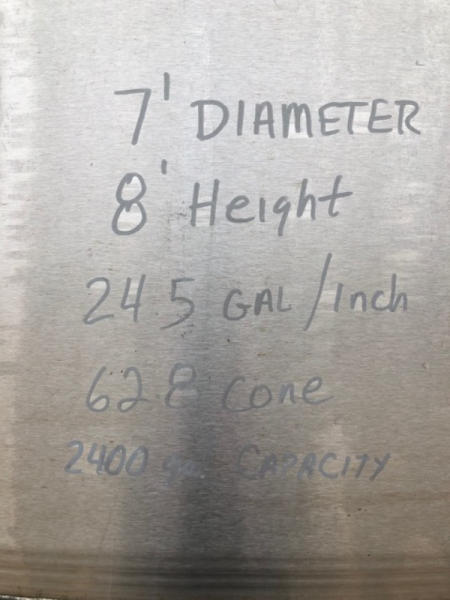 7' DIAMETER
8' Height
24.5 GAL/Inch
628 Cone
2400 CAPACITY